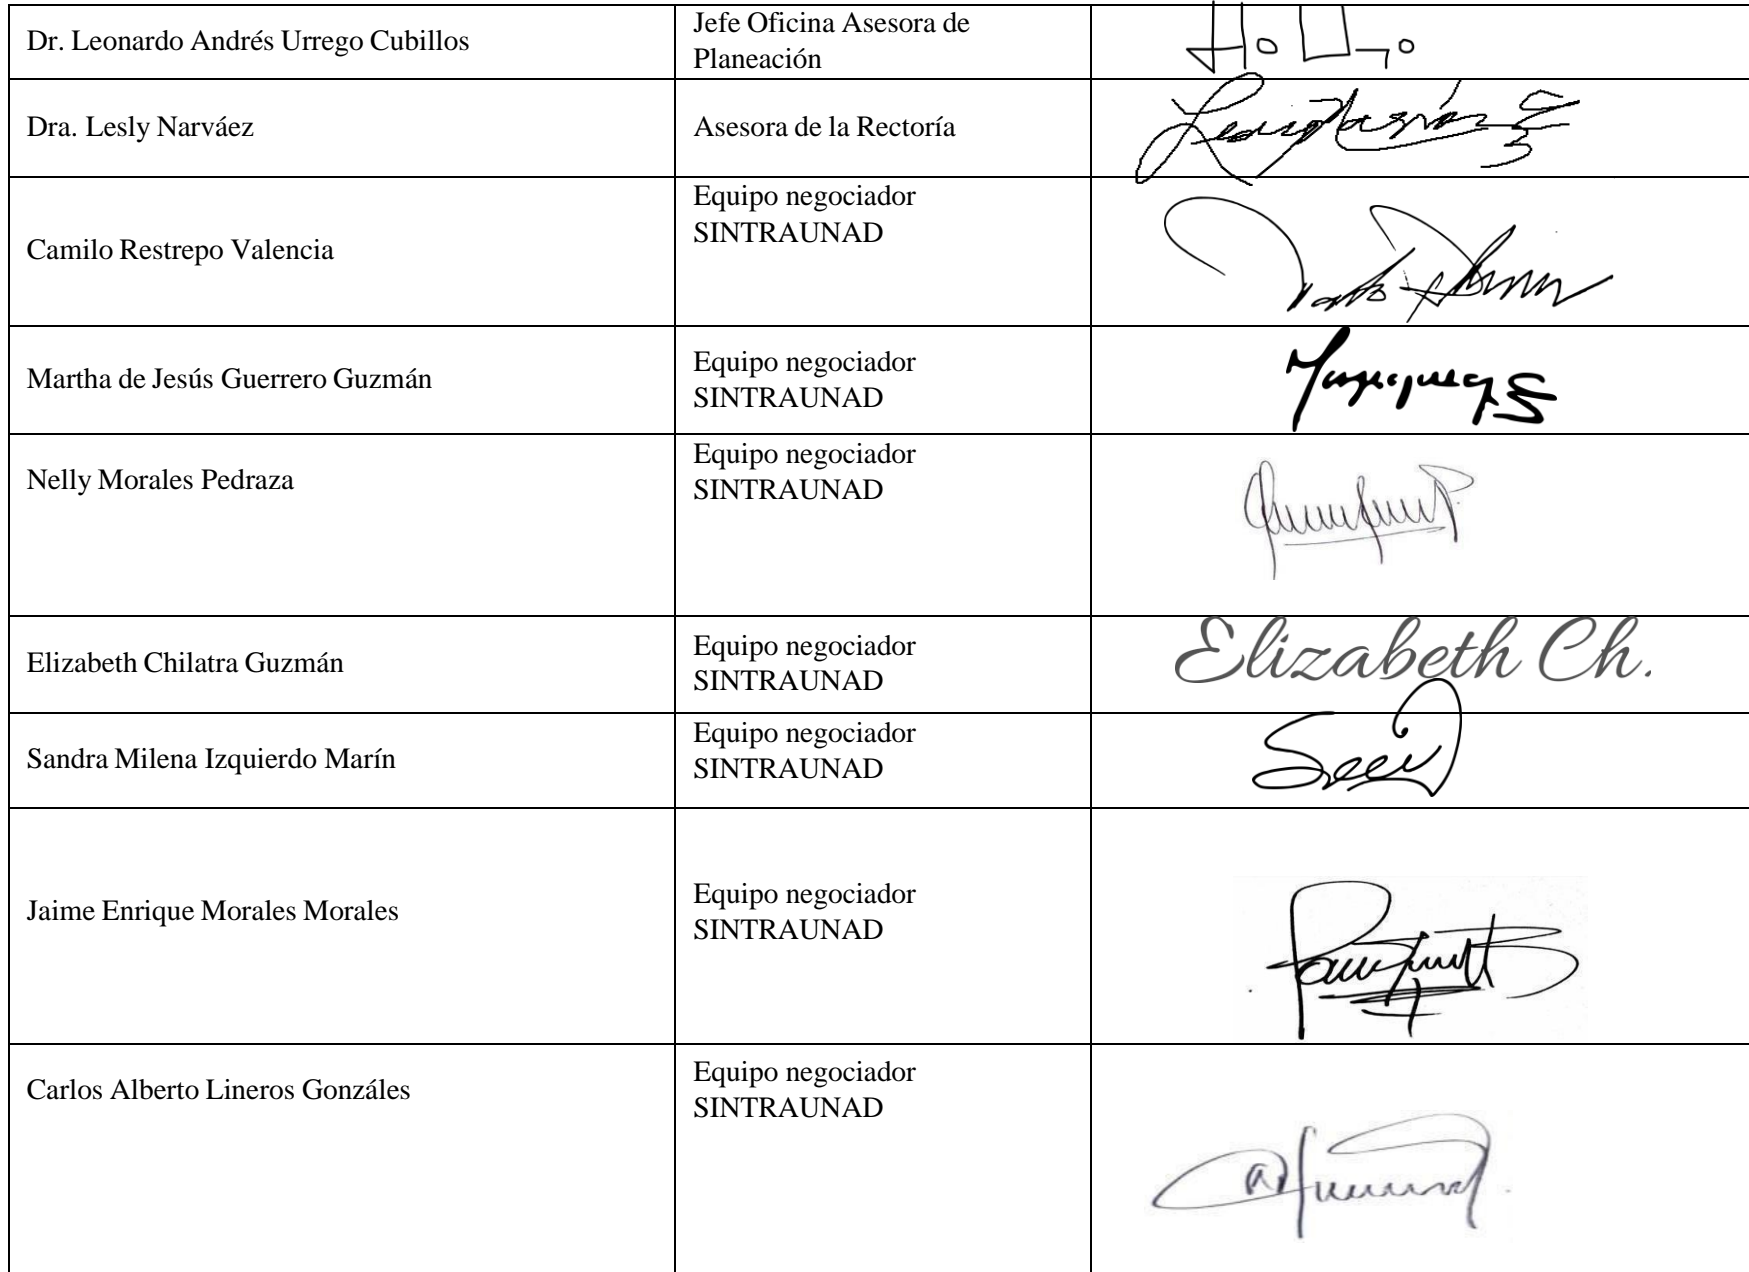 Dr. Leonardo Andrés Urrego Cubillos
Jefe Oficina Asesora de
Planeación
Dra. Lesly Narváez
Asesora de la Rectoría
Camilo Restrepo Valencia
Equipo negociador
SINTRAUNAD
Martha de Jesús Guerrero Guzmán
Equipo negociador
SINTRAUNAD
Nelly Morales Pedraza
Equipo negociador
SINTRAUNAD
Elizabeth Chilatra Guzmán
Equipo negociador
SINTRAUNAD
Elizabeth Ch.
Sandra Milena Izquierdo Marín
Equipo negociador
SINTRAUNAD
Jaime Enrique Morales Morales
Equipo negociador
SINTRAUNAD
Carlos Alberto Lineros Gonzáles
Equipo negociador
SINTRAUNAD